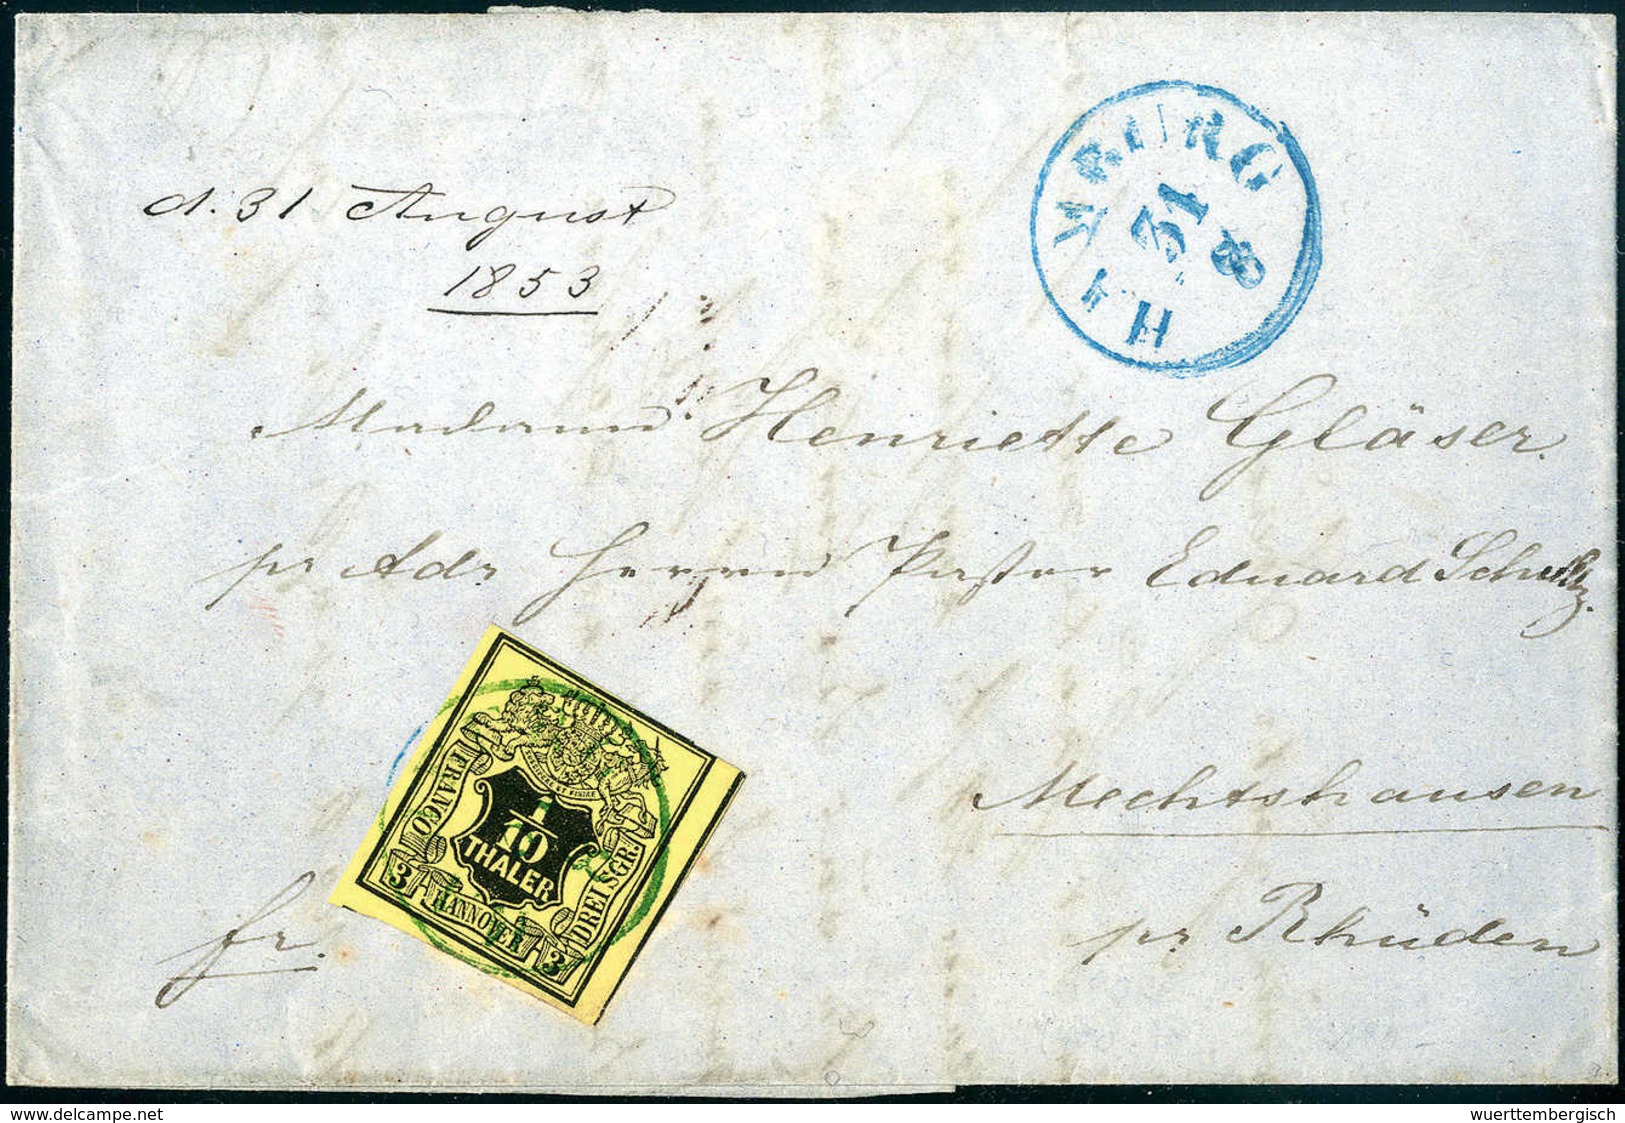 HAMBURG
31
8
d. 31 August
1853
Madame Henriette Gläser.
pr Adr Herrn Pastor Eduard Schultz.
FRANCO
1/10
THALER
DREI SGR.
3 HANNOVER 3
Mechtshausen
fr.
pr Rhüden
www.delcampe.net
wuerttembergisch